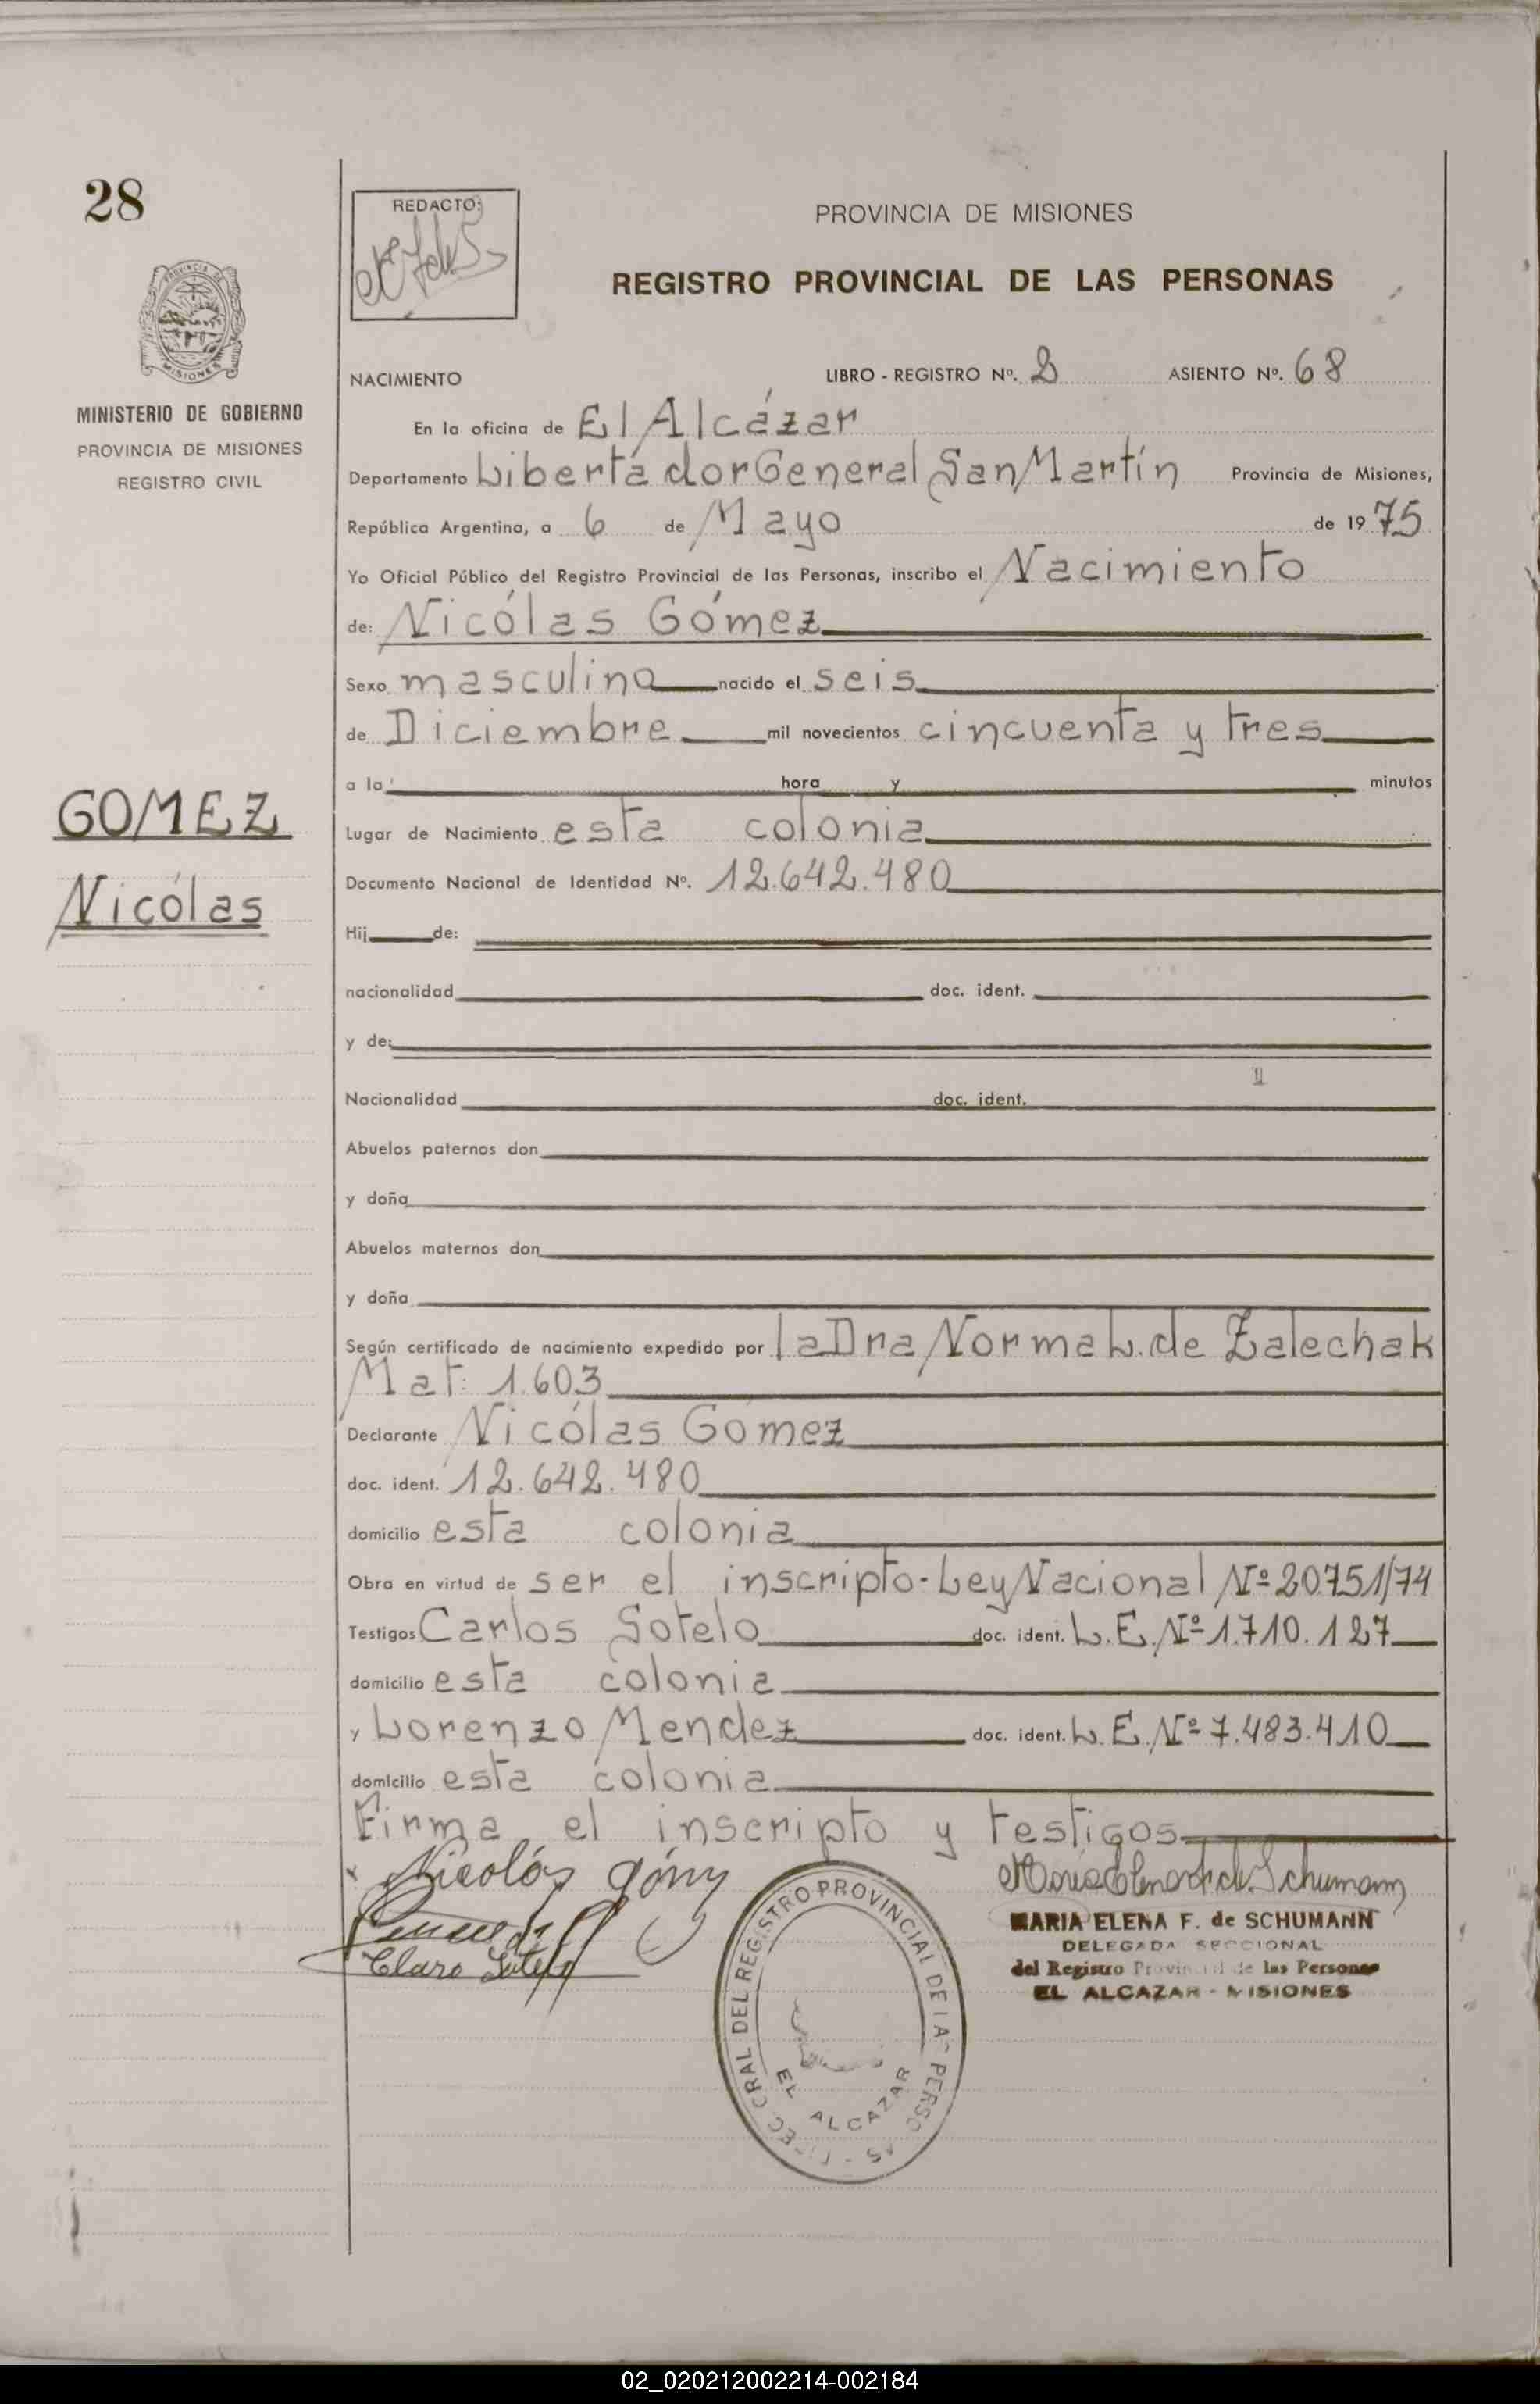 28
REDACTO:
PROVINCIA DE MISIONES
REGISTRO PROVINCIAL DE LAS PERSONAS
PROVINCIA DE MISIONES
MINISTERIO DE GOBIERNO
PROVINCIA DE MISIONES
REGISTRO CIVIL
NACIMIENTO LIBRO - REGISTRO Nº. 2 ASIENTO Nº. 68
En la oficina de El Alcázar
Departamento Libertador General San Martín Provincia de Misiones,
República Argentina, a 6 de Mayo de 1975
Yo Oficial Público del Registro Provincial de las Personas, inscribo el Nacimiento
de: Nicólas Gómez
Sexo masculino nacido el seis
de Diciembre mil novecientos cincuenta y tres
a la hora y minutos
GOMEZ
Nicólas
Lugar de Nacimiento esta colonia
Documento Nacional de Identidad Nº. 12.642.480
Hij de:
nacionalidad doc. ident.
y de:
Nacionalidad doc. ident.
Abuelos paternos don
y doña
Abuelos maternos don
y doña
Según certificado de nacimiento expedido por la Dra Norma L. de Zalechak
Mat: 1.603
Declarante Nicólas Gómez
doc. ident. 12.642.480
domicilio esta colonia
Obra en virtud de ser el inscripto-Ley Nacional Nº 20751/74
Testigos Carlos Sotelo doc. ident. L.E. Nº 1.710.127
domicilio esta colonia
y Lorenzo Mendez doc. ident. L.E. Nº 7.483.410
domicilio esta colonia
Firma el inscripto y testigos
Nicolás
MARIA ELENA F. de SCHUMANN
DELEGADA SECCIONAL
del Registro Provincial de las Personas
EL ALCAZAR - MISIONES
GRAL DEL REGISTRO PROVINCIAL DE LAS PERSONAS
EL ALCAZAR
02_020212002214-002184